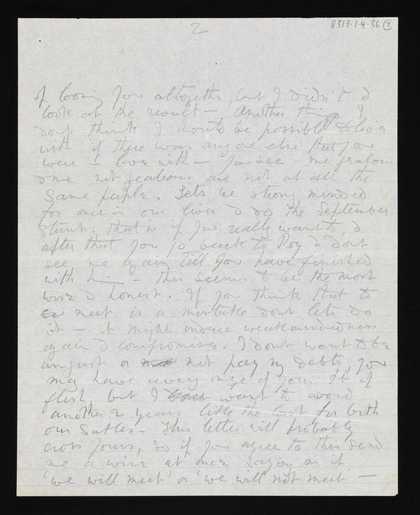 2
8313.1.4.36
of losing you altogether, but I didn't
look at the result — Another thing I
don't think it would be possible to
with if there was any one else that you
were in love with — You see
are not at all the
same people. Let's be strong minded
for once in our lives & do the September
stunt: that is if you really want to &
after that you go back to Roy & don't
see me again till you have finished
with him — this seems to be the most
wise & honest. If you think that to
meet is a mistake don't let's do
it — it might induce weakmindedness
again & compromises. I don't want to be
unjust or not pay my debts, you
may have every of your of
flesh but I want to avoid
another 2 years like the last for both
our sakes — This letter will probably
cross yours, so if you agree to this send
me a wire at once saying as if
'we will meet' or 'we will not meet' —